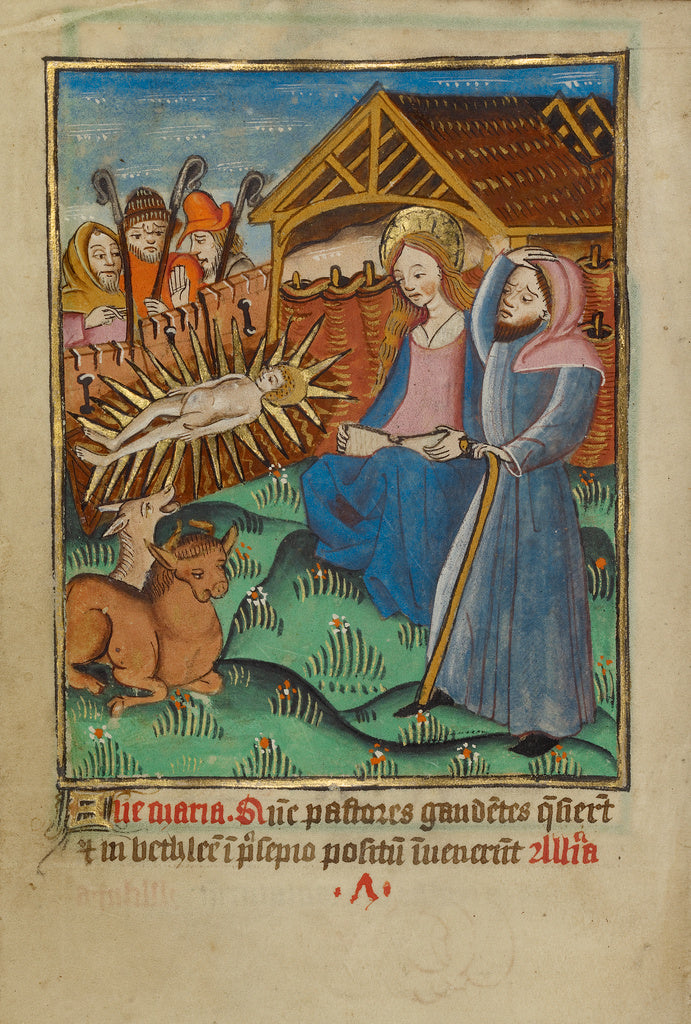 Aue maria. Que pastores gaudẽtes q̃siert̃
⁊ in bethleẽ ĩ p̃sepio positũ ĩuenerũt All'ia
.A.